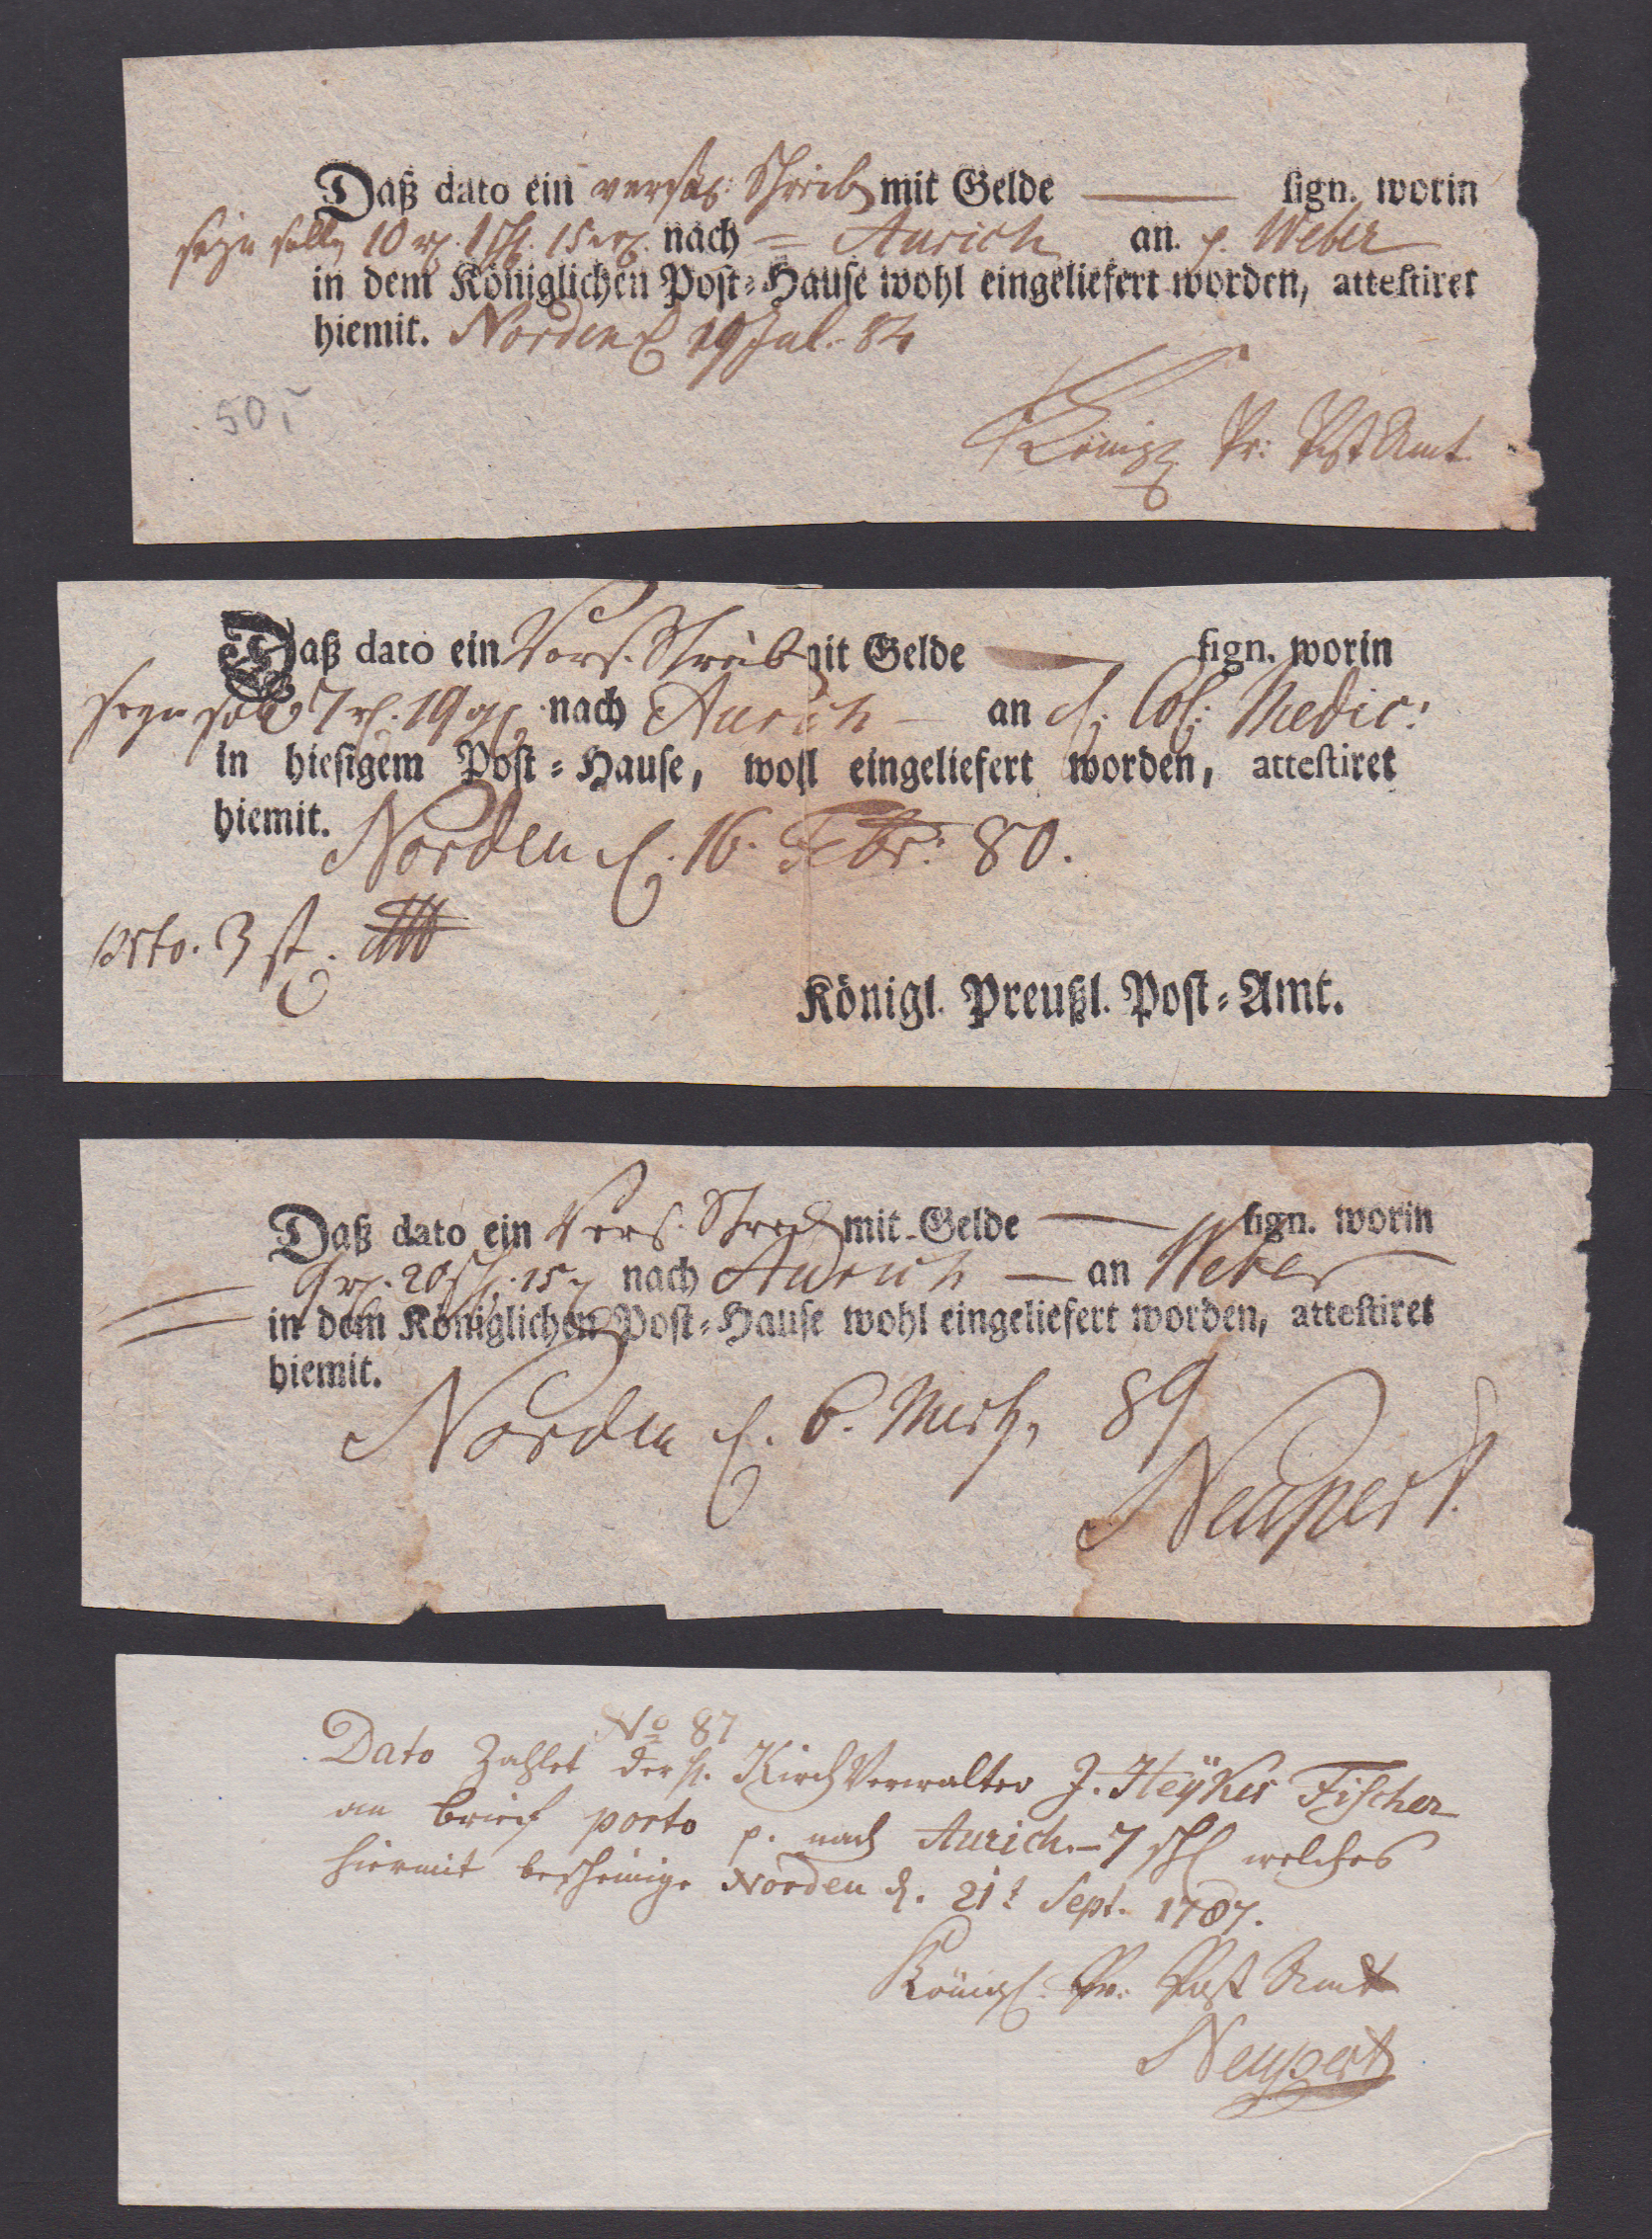 Daß dato ein versch: Schreib mit Gelde sign. worin
seyn sollen 10 nach Aurich an p. Weber
in dem Königlichen Post-Hause wohl eingeliefert worden, attestiret
hiemit. Norden 19 Jul. 84
50,-
Königl Pr: Post Amt
Daß dato ein Vers. Schreib mit Gelde sign. worin
seyn soll 7 19 nach Aurich an d. Col: Medic:
in hiesigem Post-Hause, wohl eingeliefert worden, attestiret
hiemit. Norden d. 16. Febr: 80.
Porto. 3 st.
Königl. Preußl. Post-Amt.
Daß dato ein Vers. Schreib mit Gelde sign. worin
9 20 15 nach Aurich an Weber
in dem Königlichen Post-Hause wohl eingeliefert worden, attestiret
hiemit.
Norden d. 6. Mertz 89
Neupert.
No 87
Dato Zahlet der H. Kirch Verwalter J. Heykes Fischer
an brief porto p. nach Aurich.- 7 welches
hiermit bescheinige Norden d. 21t Sept. 1787.
Königl. Pr. Post Amt
Neupert